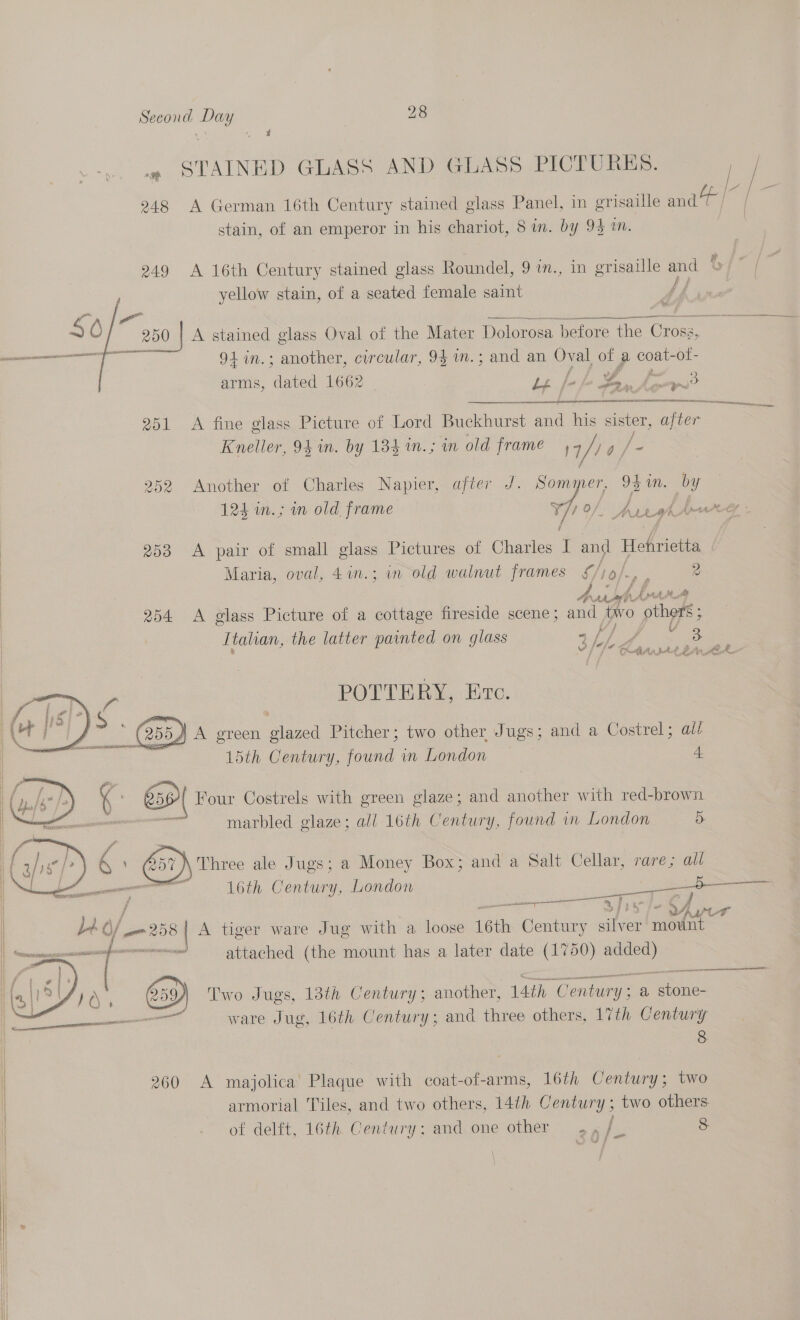 Second Day 28
STAINED GLASS AND GLASS PICTURES.
248 A German 16th Century stained glass Panel, in grisaille and
stain, of an emperor in his chariot, 8 in. by 9½ in.
249 A 16th Century stained glass Roundel, 9 in., in grisaille and
yellow stain, of a seated female saint
50/-
250 A stained glass Oval of the Mater Dolorosa before the Cross,
9½ in.; another, circular, 9½ in.; and an Oval of a coat-of-
arms, dated 1662 3
251 A fine glass Picture of Lord Buckhurst and his sister, after
Kneller, 9½ in. by 13½ in.; in old frame
252 Another of Charles Napier, after J. Sommer, 9½ in. by
12½ in.; in old frame
253 A pair of small glass Pictures of Charles I and Henrietta
Maria, oval, 4 in.; in old walnut frames 2
254 A glass Picture of a cottage fireside scene; and two others;
Italian, the latter painted on glass 3
POTTERY, ETC.
255 A green glazed Pitcher; two other Jugs; and a Costrel; all
15th Century, found in London 4
256 Four Costrels with green glaze; and another with red-brown
marbled glaze; all 16th Century, found in London 5
257 Three ale Jugs; a Money Box; and a Salt Cellar, rare; all
16th Century, London 5
258 A tiger ware Jug with a loose 16th Century silver mount
attached (the mount has a later date (1750) added)
259 Two Jugs, 13th Century; another, 14th Century; a stone-
ware Jug, 16th Century; and three others, 17th Century
8
260 A majolica Plaque with coat-of-arms, 16th Century; two
armorial Tiles, and two others, 14th Century; two others
of delft, 16th Century; and one other 8